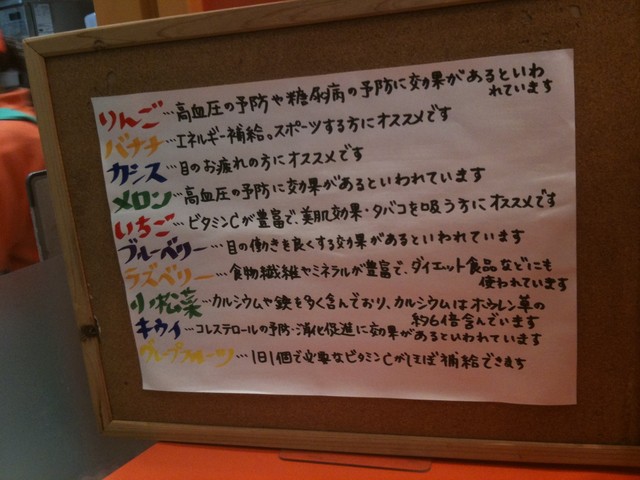 りんご…高血圧の予防や糖尿病の予防に効果があるといわ
れています
バナナ…エネルギー補給。スポーツする方にオススメです
カシス…目のお疲れの方にオススメです
メロン…高血圧の予防に効果があるといわれています
いちご…ビタミンCが豊富で、美肌効果・タバコを吸う方にオススメです
ブルーベリー…目の働きを良くする効果があるといわれています
ラズベリー…食物繊維やミネラルが豊富で、ダイエット食品などにも
使われています
小松菜…カルシウムや鉄を多く含んでおり、カルシウムはホウレン草の
約6倍含んでいます
キウイ…コレステロールの予防・消化促進に効果があるといわれています
グレープフルーツ…1日1個で必要なビタミンCがほぼ補給できます